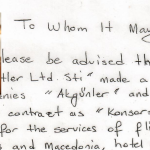 To Whom It May
lease be advised th
tler Ltd. Sti" made a
enies "Akgünler" and
contract as "Konsor
for the services of fli
and Macedonia, hotel